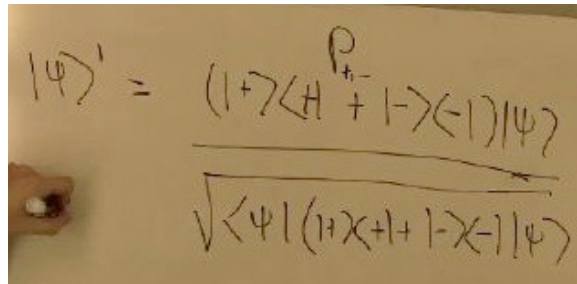 P+,-
|ψ>' = (|+><+| + |-><-|)|ψ>
√<ψ|(|+><+| + |-><-|ψ>